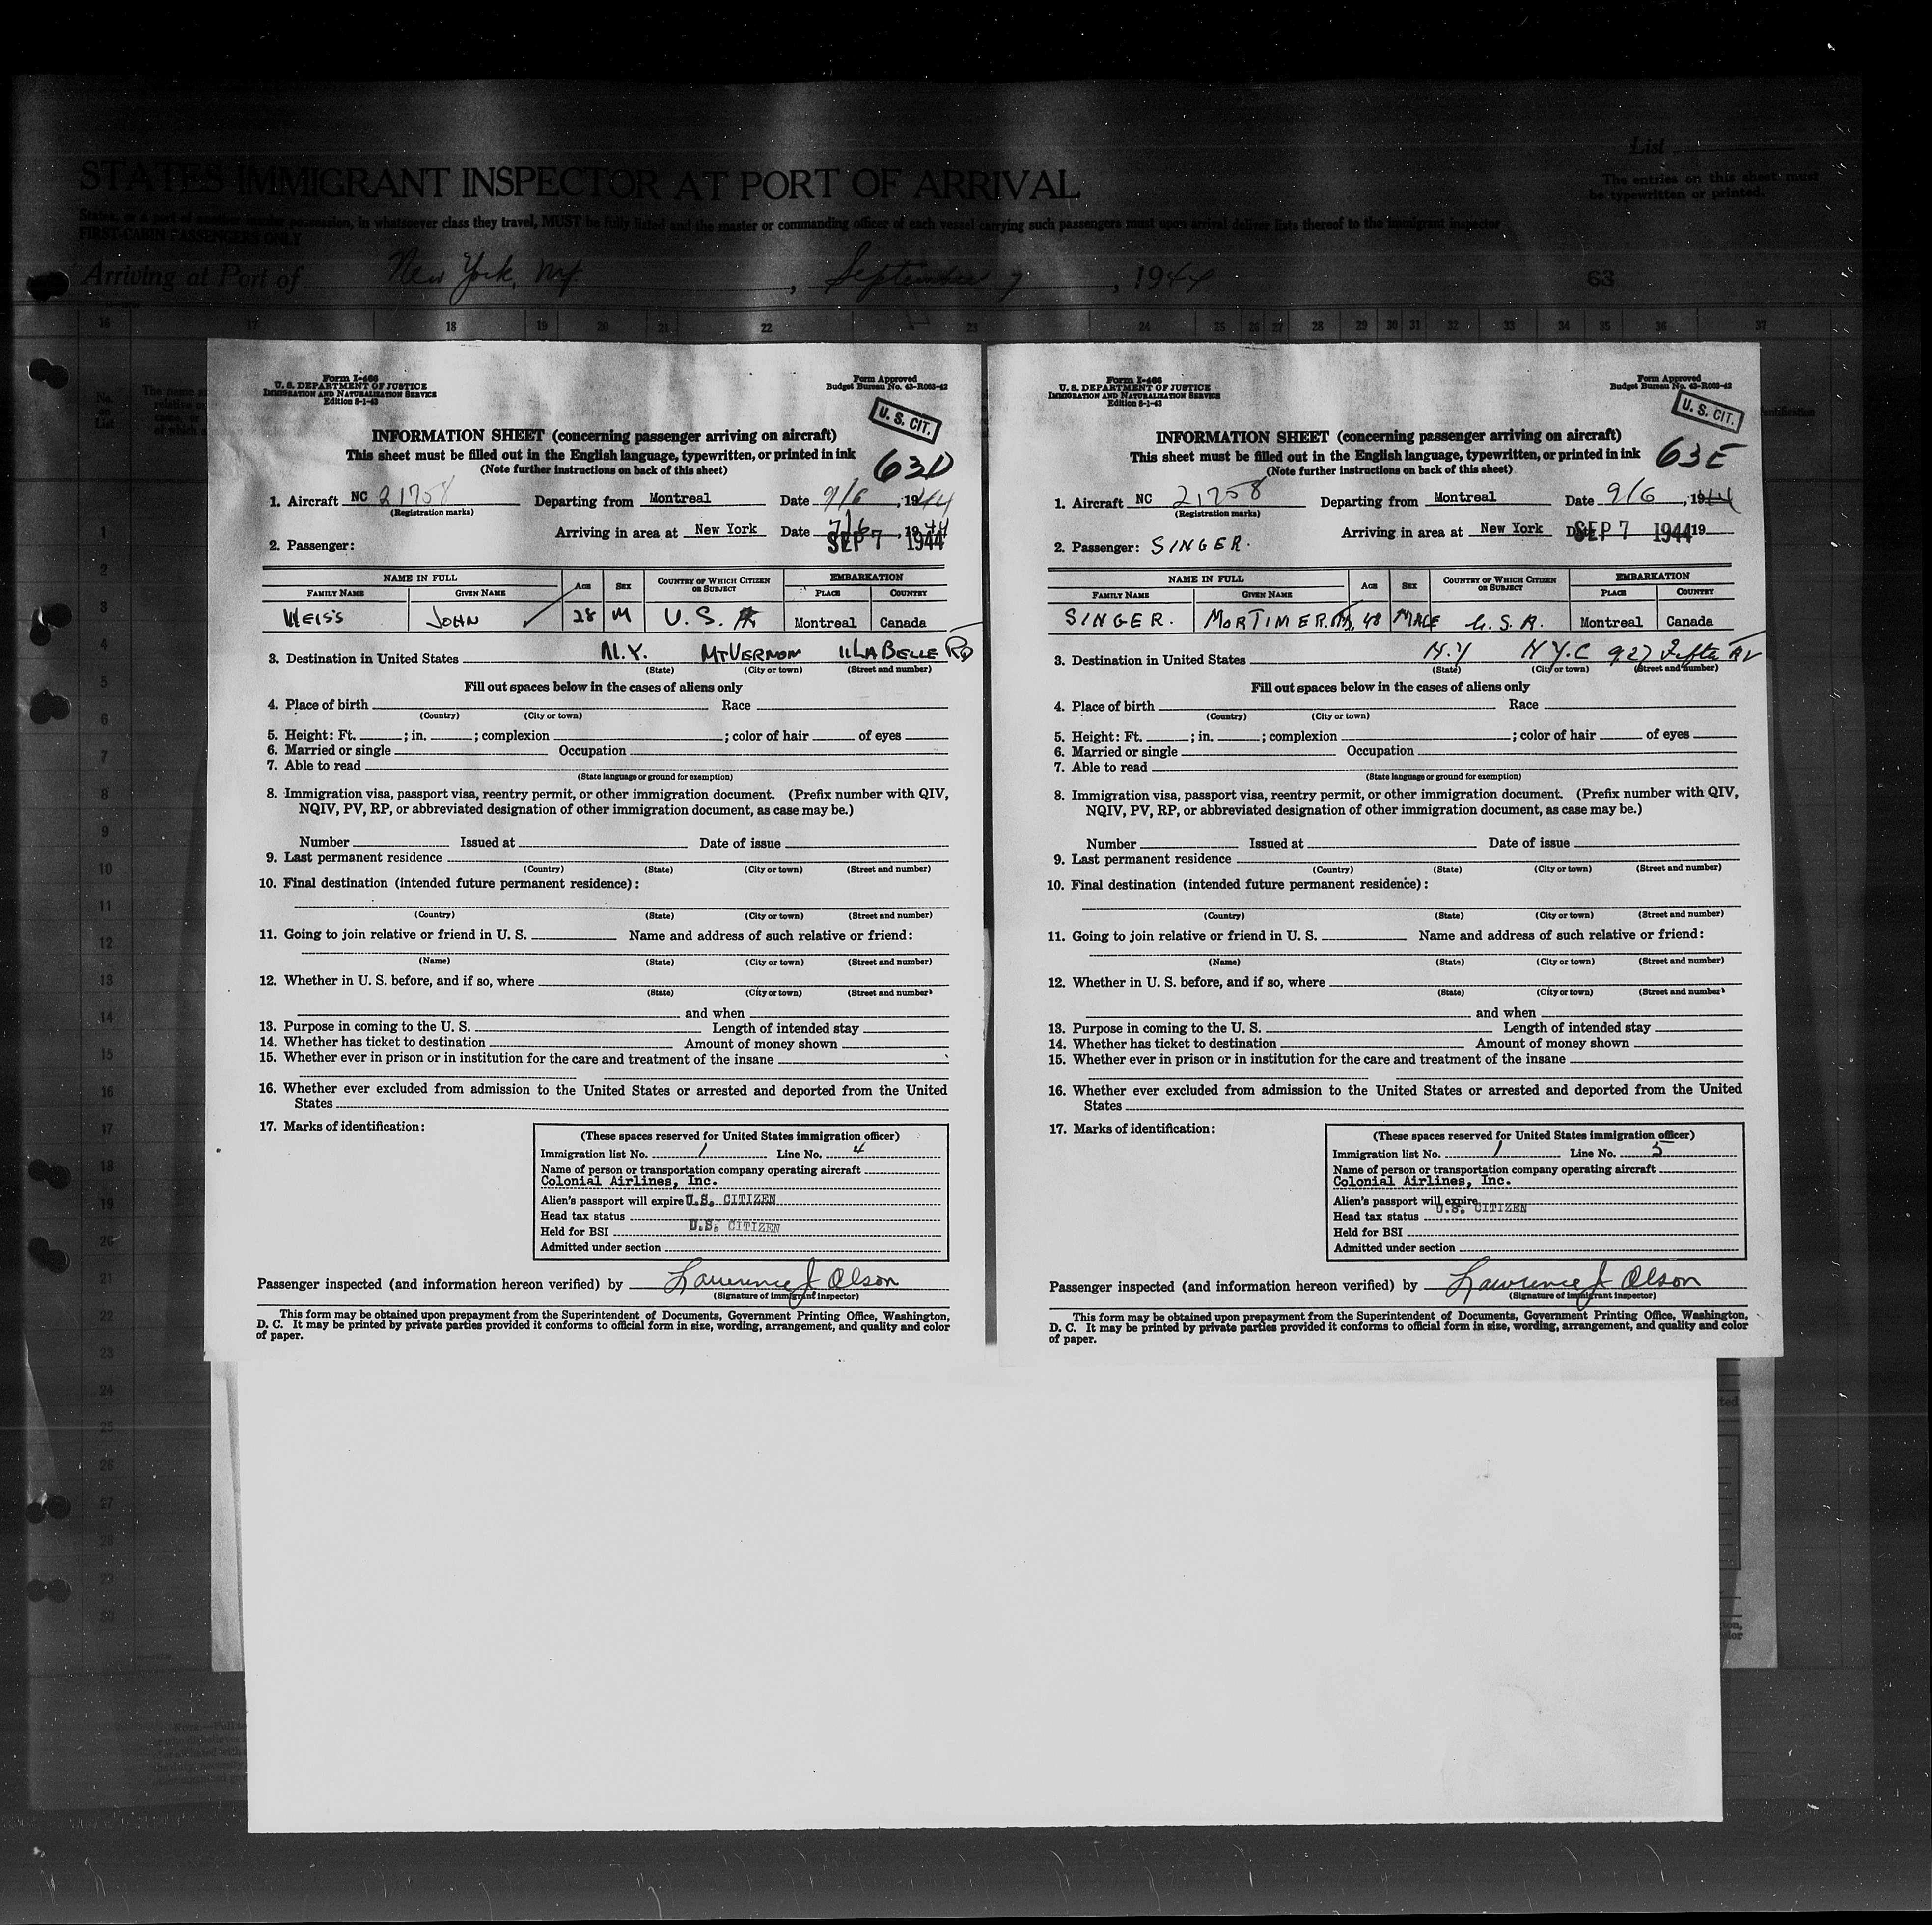 List
STATES IMMIGRANT INSPECTOR AT PORT OF ARRIVAL
The entries on this sheet must
be typewritten or printed.
States, or a port of another insular possession, in whatsoever class they travel, MUST be fully listed and the master or commanding officer of each vessel carrying such passengers must upon arrival deliver lists thereof to the immigrant inspector
FIRST-CABIN PASSENGERS ONLY
Arriving at Port of New York, , September 7, 1944 63
16 17 18 19 20 21 22 23 24 25 26 27 28 29 30 31 32 33 34 35 36 37
No.
on
List
1
2
3
4
5
6
7
8
9
10
11
12
13
14
15
16
17
18
19
20
21
22
23
24
25
26
27
28
29
30
Form I-466
U. S. DEPARTMENT OF JUSTICE
IMMIGRATION AND NATURALIZATION SERVICE
Edition 8-1-43
Form Approved
Budget Bureau No. 43-R063-42
U. S. CIT.
INFORMATION SHEET (concerning passenger arriving on aircraft)
This sheet must be filled out in the English language, typewritten, or printed in ink
63D
(Note further instructions on back of this sheet)
1. Aircraft NC 21758 Departing from Montreal Date 9/6, 1944
(Registration marks)
Arriving in area at New York Date 1944
SEP 7 1944
2. Passenger:
NAME IN FULL AGE SEX COUNTRY OF WHICH CITIZEN OR SUBJECT EMBARKATION
FAMILY NAME GIVEN NAME PLACE COUNTRY
WEISS JOHN 28 M U. S. A Montreal Canada
3. Destination in United States N.Y. MT VERNON 11 LA BELLE RD
(State) (City or town) (Street and number)
Fill out spaces below in the cases of aliens only
4. Place of birth Race
(Country) (City or town)
5. Height: Ft. ; in. ; complexion ; color of hair of eyes
6. Married or single Occupation
7. Able to read
(State language or ground for exemption)
8. Immigration visa, passport visa, reentry permit, or other immigration document. (Prefix number with QIV,
NQIV, PV, RP, or abbreviated designation of other immigration document, as case may be.)
Number Issued at Date of issue
9. Last permanent residence
(Country) (State) (City or town) (Street and number)
10. Final destination (intended future permanent residence):
(Country) (State) (City or town) (Street and number)
11. Going to join relative or friend in U. S. Name and address of such relative or friend:
(Name) (State) (City or town) (Street and number)
12. Whether in U. S. before, and if so, where
(State) (City or town) (Street and number)
and when
13. Purpose in coming to the U. S. Length of intended stay
14. Whether has ticket to destination Amount of money shown
15. Whether ever in prison or in institution for the care and treatment of the insane
16. Whether ever excluded from admission to the United States or arrested and deported from the United
States
17. Marks of identification:
(These spaces reserved for United States immigration officer)
Immigration list No. 1 Line No. 4
Name of person or transportation company operating aircraft
Colonial Airlines, Inc.
Alien's passport will expire U.S. CITIZEN
Head tax status
U.S. CITIZEN
Held for BSI
Admitted under section
Passenger inspected (and information hereon verified) by Lawrence J Olson
(Signature of immigrant inspector)
This form may be obtained upon prepayment from the Superintendent of Documents, Government Printing Office, Washington,
D. C. It may be printed by private parties provided it conforms to official form in size, wording, arrangement, and quality and color
of paper.
Form I-466
U. S. DEPARTMENT OF JUSTICE
IMMIGRATION AND NATURALIZATION SERVICE
Edition 8-1-43
Form Approved
Budget Bureau No. 43-R063-42
U. S. CIT.
INFORMATION SHEET (concerning passenger arriving on aircraft)
This sheet must be filled out in the English language, typewritten, or printed in ink
63E
(Note further instructions on back of this sheet)
1. Aircraft NC 21758 Departing from Montreal Date 9/6, 1944
(Registration marks)
Arriving in area at New York Date SEP 7 1944 19
2. Passenger: SINGER.
NAME IN FULL AGE SEX COUNTRY OF WHICH CITIZEN OR SUBJECT EMBARKATION
FAMILY NAME GIVEN NAME PLACE COUNTRY
SINGER. MORTIMER. M, 48 MALE U. S. A. Montreal Canada
3. Destination in United States N.Y N.Y.C 927 Fifth AV
(State) (City or town) (Street and number)
Fill out spaces below in the cases of aliens only
4. Place of birth Race
(Country) (City or town)
5. Height: Ft. ; in. ; complexion ; color of hair of eyes
6. Married or single Occupation
7. Able to read
(State language or ground for exemption)
8. Immigration visa, passport visa, reentry permit, or other immigration document. (Prefix number with QIV,
NQIV, PV, RP, or abbreviated designation of other immigration document, as case may be.)
Number Issued at Date of issue
9. Last permanent residence
(Country) (State) (City or town) (Street and number)
10. Final destination (intended future permanent residence):
(Country) (State) (City or town) (Street and number)
11. Going to join relative or friend in U. S. Name and address of such relative or friend:
(Name) (State) (City or town) (Street and number)
12. Whether in U. S. before, and if so, where
(State) (City or town) (Street and number)
and when
13. Purpose in coming to the U. S. Length of intended stay
14. Whether has ticket to destination Amount of money shown
15. Whether ever in prison or in institution for the care and treatment of the insane
16. Whether ever excluded from admission to the United States or arrested and deported from the United
States
17. Marks of identification:
(These spaces reserved for United States immigration officer)
Immigration list No. 1 Line No. 5
Name of person or transportation company operating aircraft
Colonial Airlines, Inc.
Alien's passport will expire
U.S. CITIZEN
Head tax status
Held for BSI
Admitted under section
Passenger inspected (and information hereon verified) by Lawrence J Olson
(Signature of immigrant inspector)
This form may be obtained upon prepayment from the Superintendent of Documents, Government Printing Office, Washington,
D. C. It may be printed by private parties provided it conforms to official form in size, wording, arrangement, and quality and color
of paper.